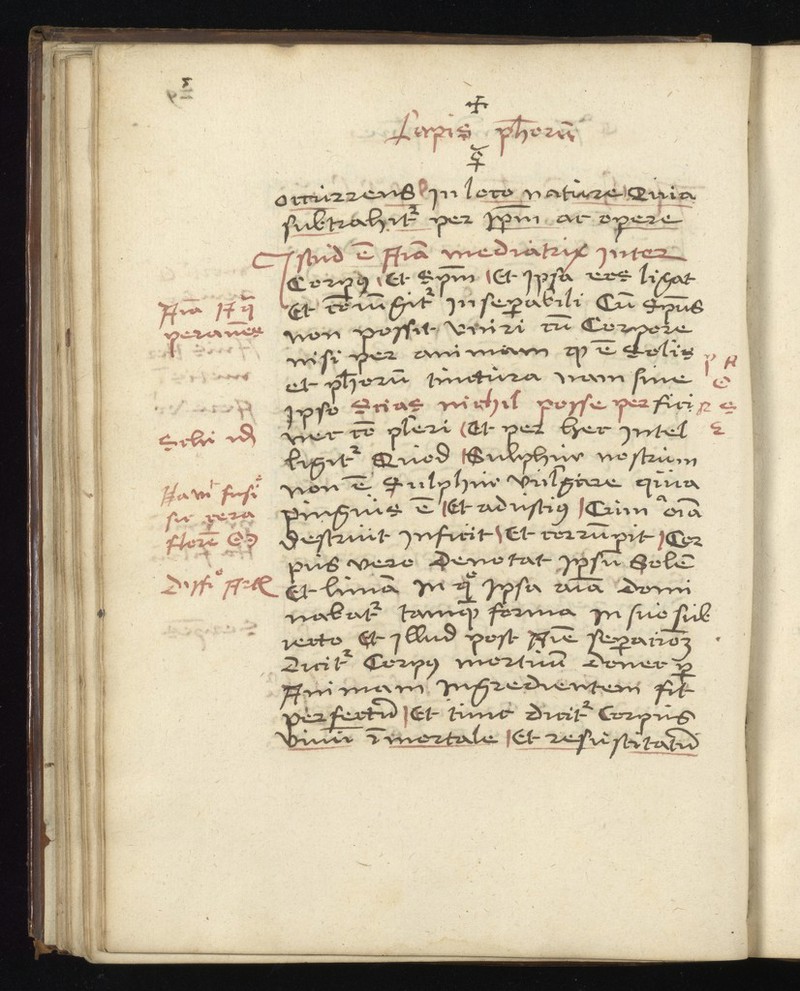 Lapis ph̄orū
occurrens In loco nature Quia
subtrahit᷑ per Ip̄m ac opere
Istud ē Aīa mediatrix Inter
Corpus Et Sp̄m Et Ipsa eos ligat
Et cōiungit᷑ Inseparabili Cū Sp̄us
non possit Uniri cū Corpore
nisi per animam q̄ ē Solis
et ph̄orū tinctura nam sine
Ipso Scias nichil posse perfici
nec cōpleri Et per hec Intel
ligit᷑ Quod Sulphur nostrum
non ē Sulphur vulgare quia
pinguis ē Et adustius Cum oīa
destruit Inficit Et corrūpit Cor
pus vero Denotat Ipsū Solē
Et lunā In Ipsa aīa domi
nabat᷑ tamq̄ forma In suo sub
iecto Et Illud post Aīe sep̄atiōꝫ
Dicit᷑ Corpus mortuū donec p̱
Animam Ingredientem fit
perfectū Et tunc dicit᷑ Corpus
vivū īmortale Et resuscitatū
Aīa